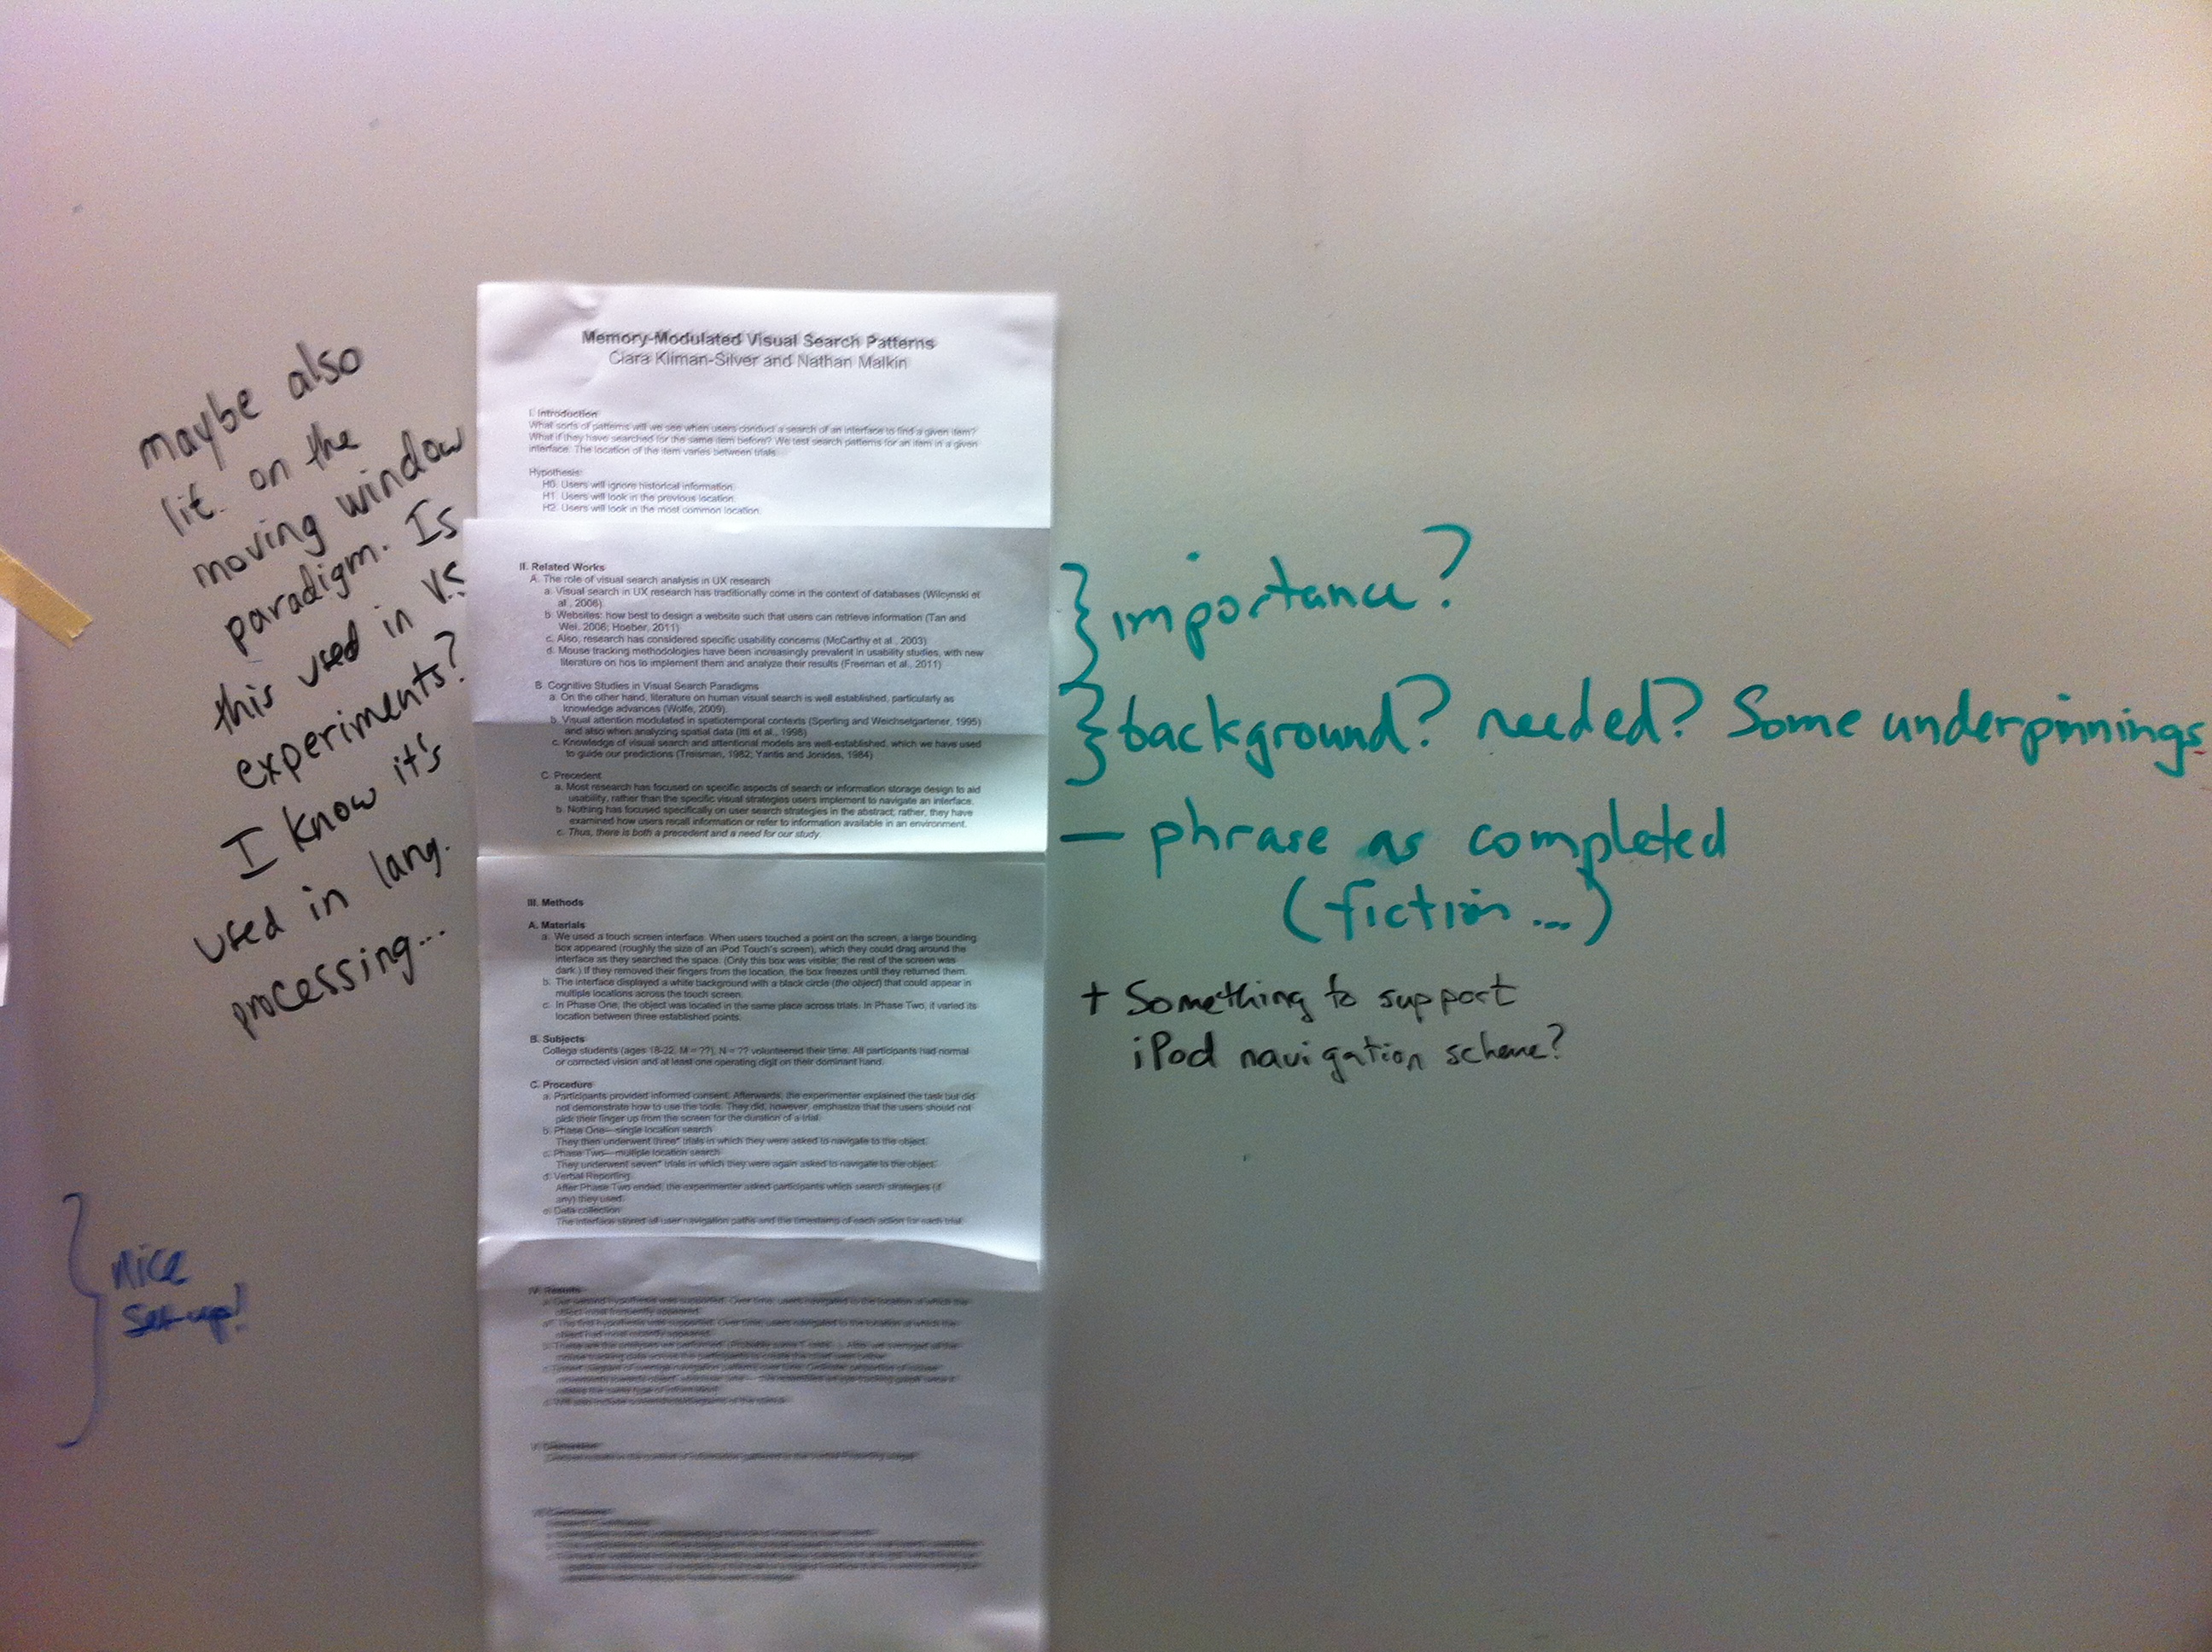 maybe also
lit. on the
moving window
paradigm. Is
this used in VS
experiments?
I know it's
used in lang.
processing...
nice
set-up!
Memory-Modulated Visual Search Patterns
Clara Kliman-Silver and Nathan Malkin
I. Introduction
What sorts of patterns will we see when users conduct a search of an interface to find a given item?
What if they have searched for the same item before? We test search patterns for an item in a given
interface. The location of the item varies between trials.
Hypothesis:
H0. Users will ignore historical information.
H1. Users will look in the previous location.
H2. Users will look in the most common location.
II. Related Works
A. The role of visual search analysis in UX research
a. Visual search in UX research has traditionally come in the context of databases (Wilcynski et
al., 2006)
b. Websites: how best to design a website such that users can retrieve information (Tan and
Wei, 2006; Hoeber, 2011)
c. Also, research has considered specific usability concerns (McCarthy et al., 2003)
d. Mouse tracking methodologies have been increasingly prevalent in usability studies, with new
literature on hos to implement them and analyze their results (Freeman et al., 2011)
B. Cognitive Studies in Visual Search Paradigms
a. On the other hand, literature on human visual search is well established, particularly as
knowledge advances (Wolfe, 2009).
b. Visual attention modulated in spatiotemporal contexts (Sperling and Weichselgartener, 1995)
and also when analyzing spatial data (Itti et al., 1998)
c. Knowledge of visual search and attentional models are well-established, which we have used
to guide our predictions (Treisman, 1982; Yantis and Jonides, 1984)
C. Precedent
a. Most research has focused on specific aspects of search or information storage design to aid
usability, rather than the specific visual strategies users implement to navigate an interface.
b. Nothing has focused specifically on user search strategies in the abstract; rather, they have
examined how users recall information or refer to information available in an environment.
c. Thus, there is both a precedent and a need for our study.
III. Methods
A. Materials
a. We used a touch screen interface. When users touched a point on the screen, a large bounding
box appeared (roughly the size of an iPod Touch's screen), which they could drag around the
interface as they searched the space. (Only this box was visible; the rest of the screen was
dark.) If they removed their fingers from the location, the box freezes until they returned them.
b. The interface displayed a white background with a black circle (the object) that could appear in
multiple locations across the touch screen.
c. In Phase One, the object was located in the same place across trials. In Phase Two, it varied its
location between three established points.
B. Subjects
College students (ages 18-22, M = ??), N = ?? volunteered their time. All participants had normal
or corrected vision and at least one operating digit on their dominant hand.
C. Procedure
a. Participants provided informed consent. Afterwards, the experimenter explained the task but did
not demonstrate how to use the tools. They did, however, emphasize that the users should not
pick their finger up from the screen for the duration of a trial.
b. Phase One—single location search
They then underwent three* trials in which they were asked to navigate to the object.
c. Phase Two—multiple location search
They underwent seven* trials in which they were again asked to navigate to the object.
d. Verbal Reporting
After Phase Two ended, the experimenter asked participants which search strategies (if
any) they used.
e. Data collection
The interface stored all user navigation paths and the timestamp of each action for each trial.
IV. Results
a. Our second hypothesis was supported. Over time, users navigated to the location at which the
object most frequently appeared.
a*. The first hypothesis was supported. Over time, users navigated to the location at which the
object had most recently appeared.
importance?
background? needed? Some underpinnings
— phrase as completed
(fiction...)
+ Something to support
iPod navigation scheme?